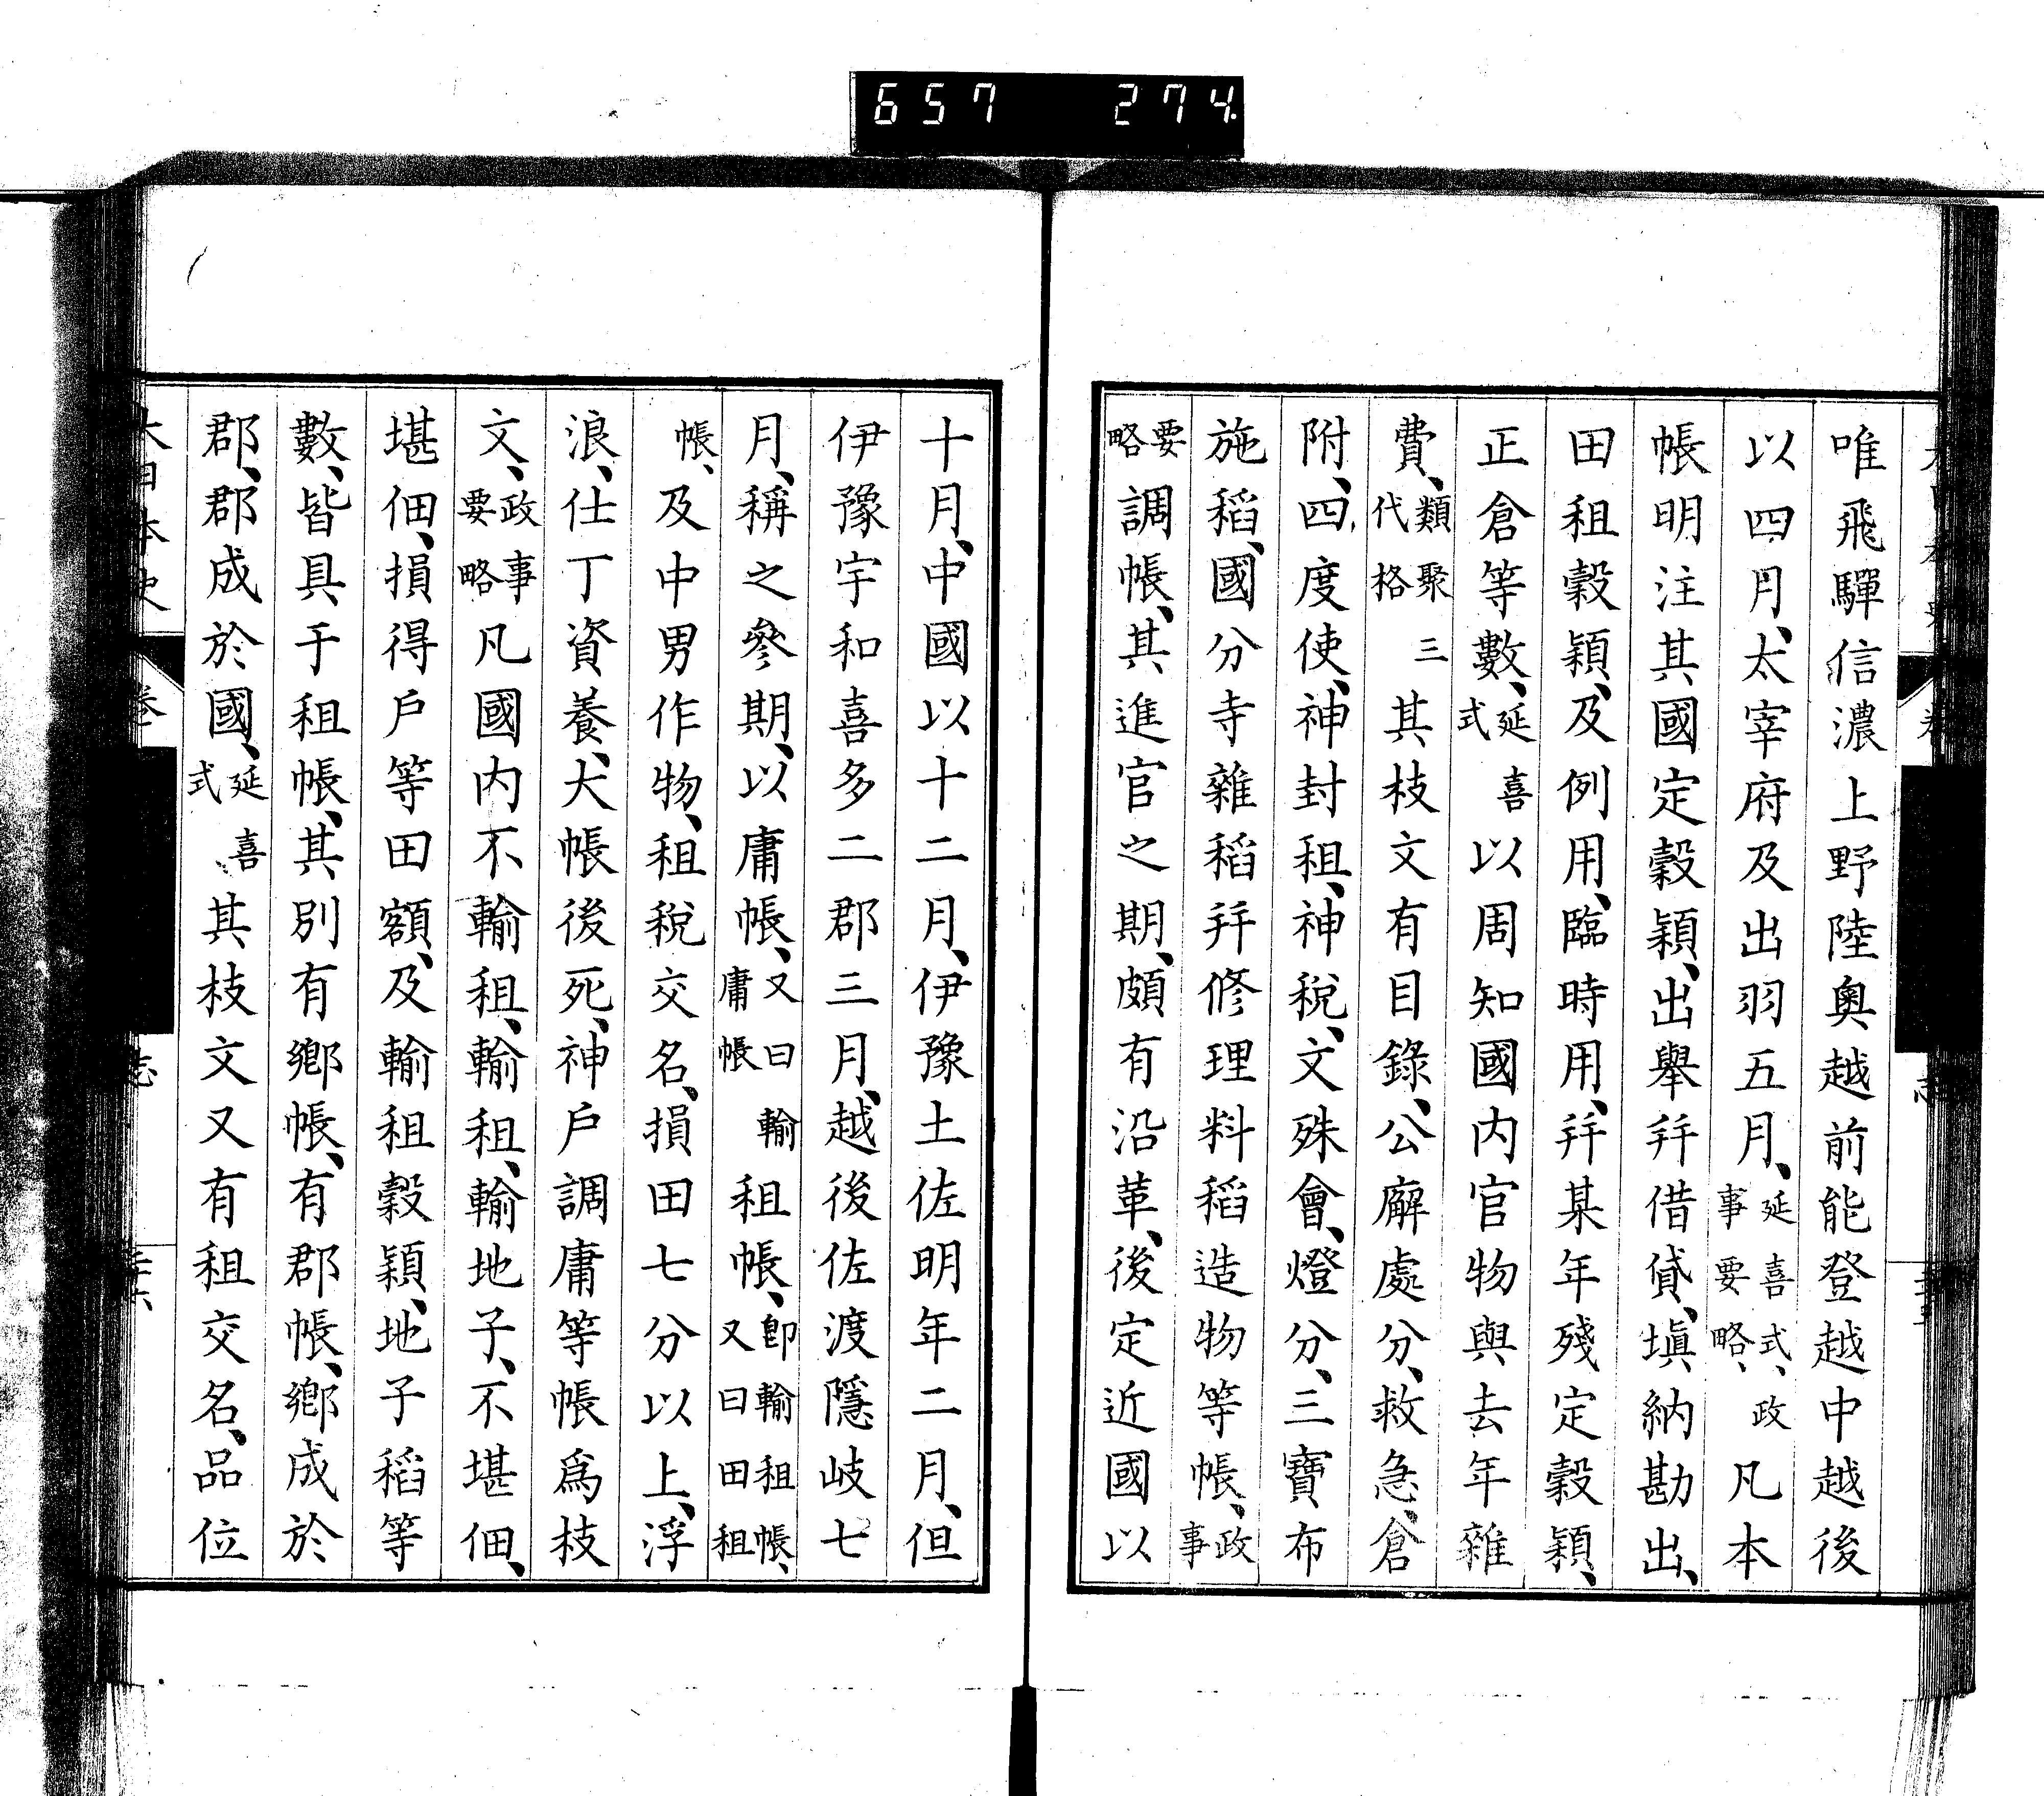 657 274.
唯飛驒信濃上野陸奥越前能登越中越後
以四月、太宰府及出羽五月、延喜式、政事要略、凡本
帳明注其國定穀穎、出舉幷借貸、塡納勘出、
田租穀穎、及例用、臨時用、幷某年殘定穀穎、
正倉等數、延喜式以周知國内官物與去年雜
費、類聚三代格其枝文有目錄、公廨處分、救急、倉
附、四度使、神封租、神稅、文殊會、燈分、三寶布
施稻、國分寺雜稻幷修理料稻造物等帳、政事
要略調帳、其進官之期、頗有沿革、後定近國以
十月、中國以十二月、伊豫土佐明年二月、但
伊豫宇和喜多二郡三月、越後佐渡隱岐七
月、稱之參期、以庸帳、又曰輸庸帳租帳、卽輸租帳、又曰田租
帳、及中男作物、租稅交名、損田七分以上、浮
浪、仕丁資養、大帳後死、神戶調庸等帳爲枝
文、政事要略凡國内不輸租、輸租、輸地子、不堪佃、
堪佃、損得戶等田額、及輸租穀穎、地子稻等
數、皆具于租帳、其別有鄕帳、有郡帳、鄕成於
郡、郡成於國、延喜式其枝文又有租交名、品位
大日本史 卷 志